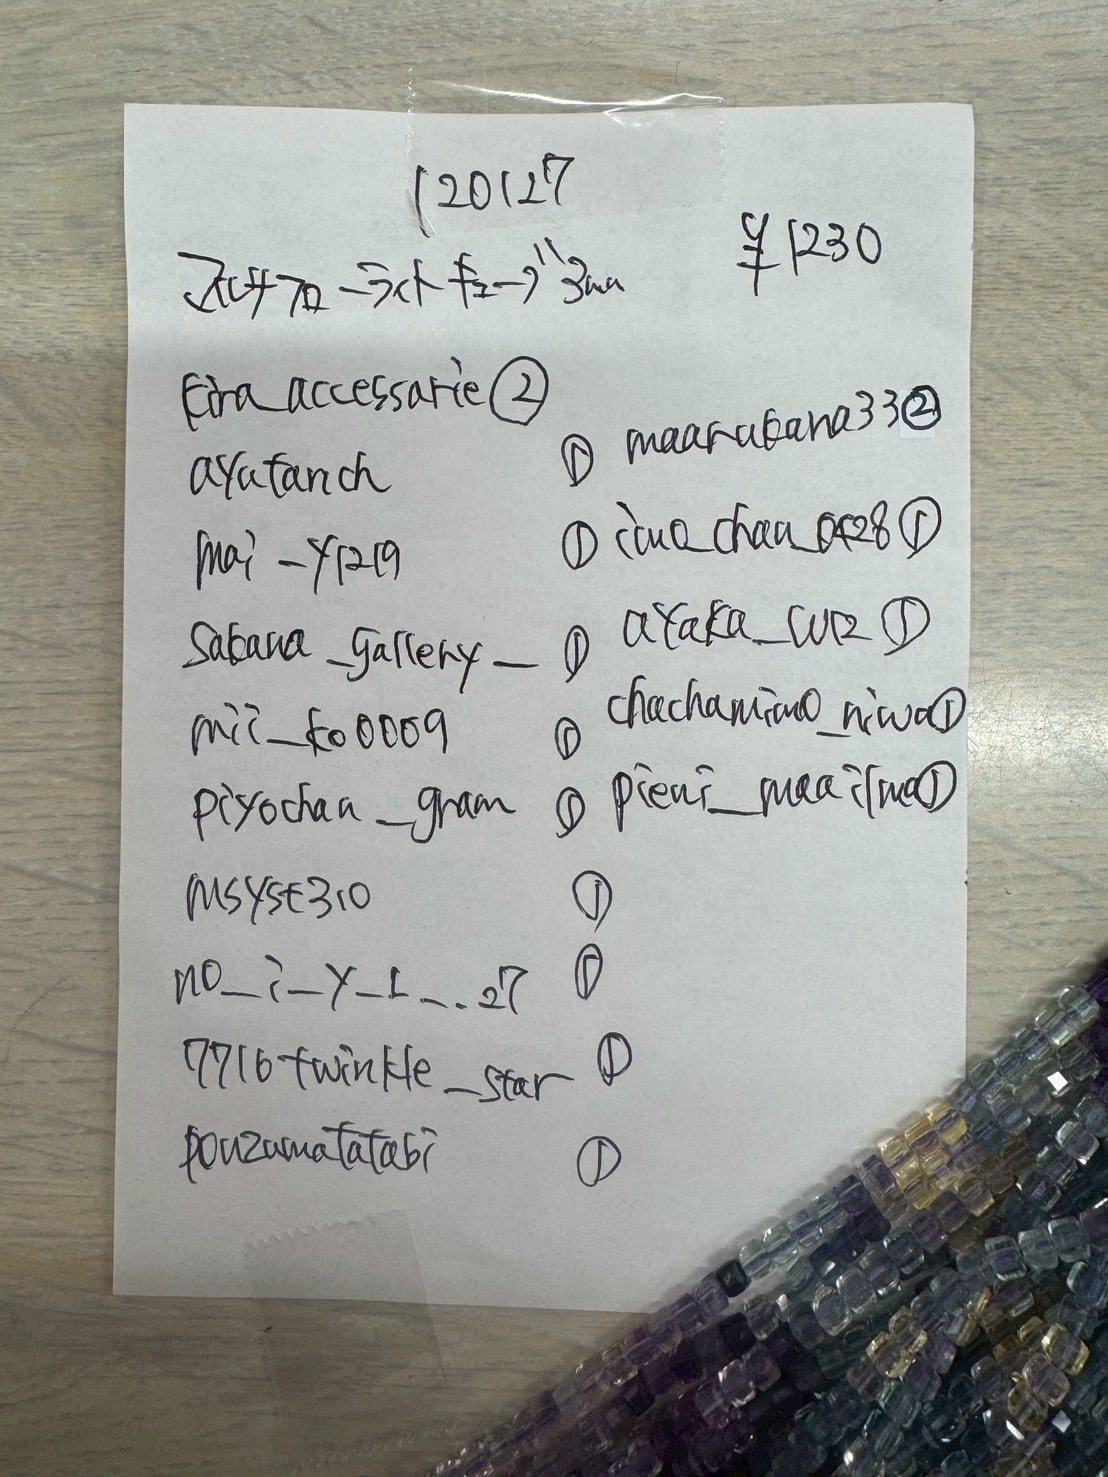 120127
¥1230
マルチフローライトキューブ3mm
kira_accessarie②
ayutanch ①
mai_y1219 ①
sakana_gallery_ ①
mii_ko0009 ①
piyochan_gram ①
msyst310 ①
no_i_y_1_..27 ①
7716twinkle_star ①
ponzumatatabi ①
maarukana33②
①
ayaka_ ①
chachamimo_niwa①
pieni_maailma①